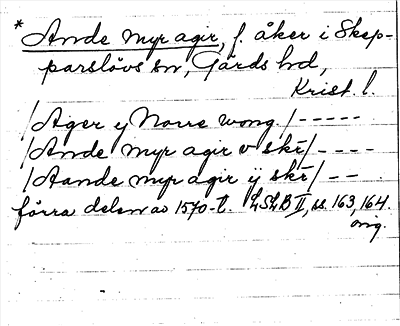 * Ande myr agir, f. åker i Skep-
parslövs sn, Gärds hd,
Krist. l.
/Ager y Norre wong./-----
/Ande myr agir v skr̄/----
/Aande myr agir ij skr̄/--
förra delen av 1570-t. LSLB II, ss. 163, 164.
orig.